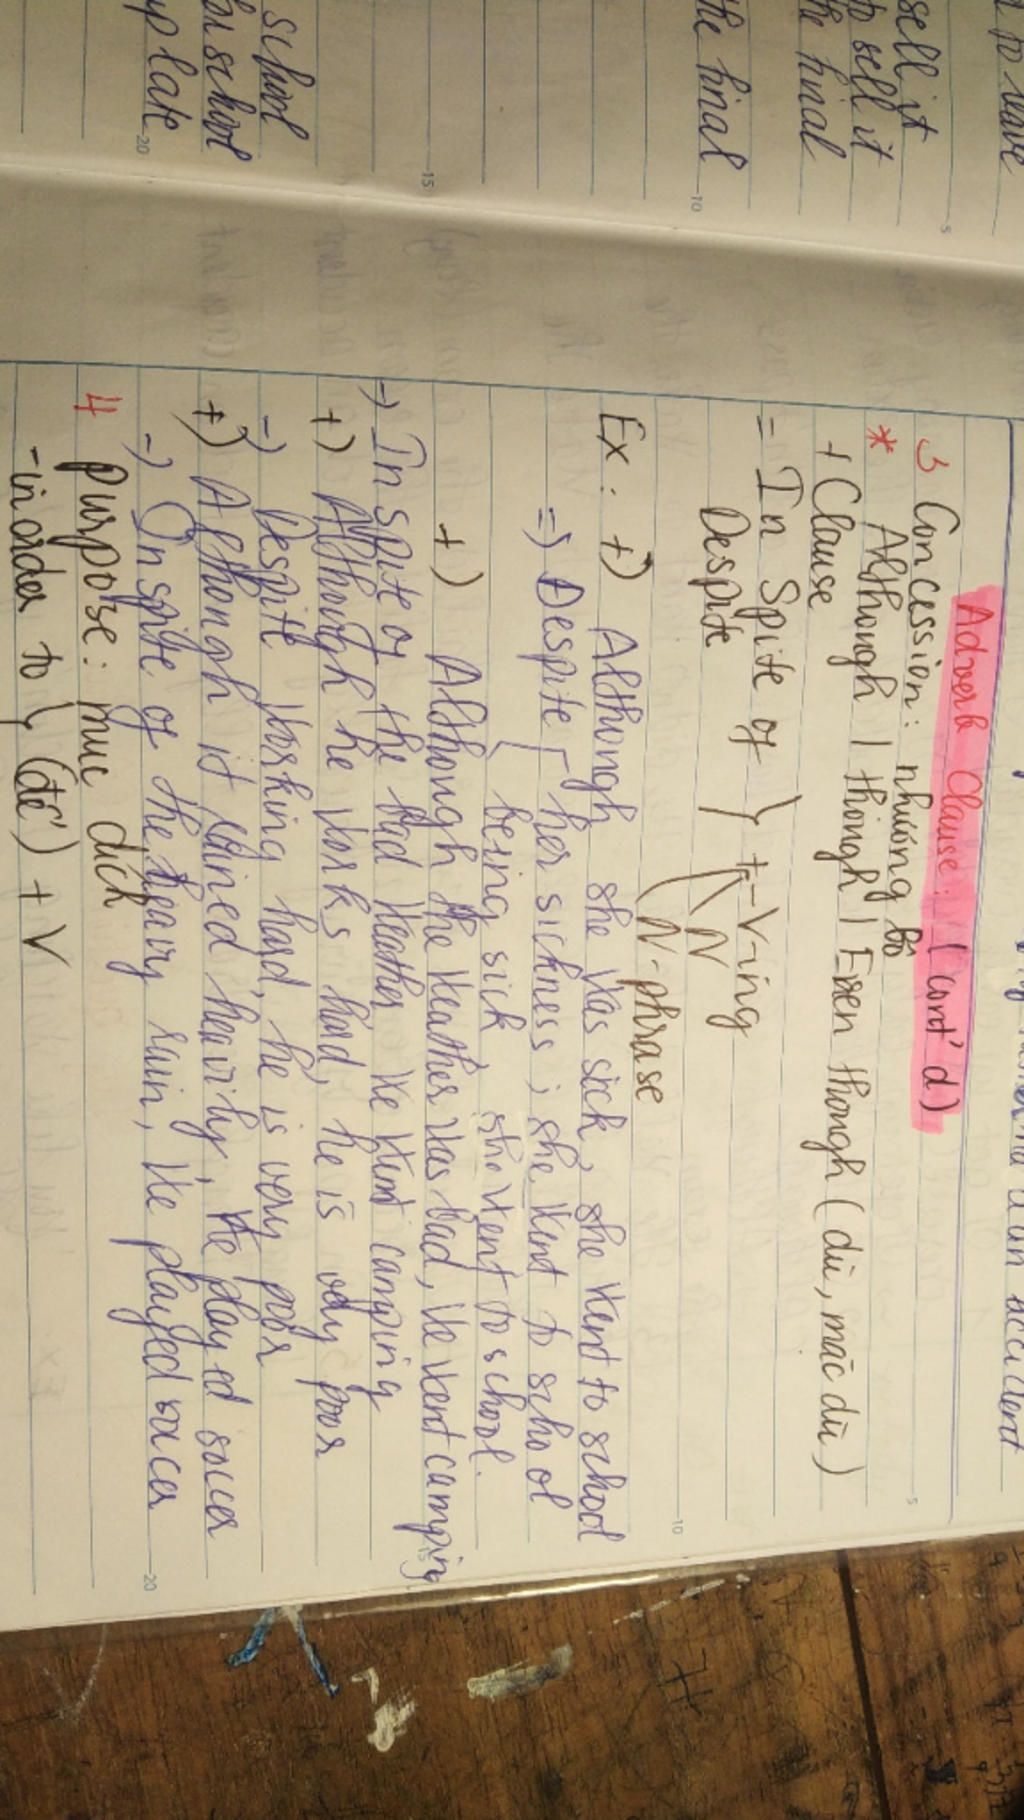 to leave
sell it
to sell it
the final
the final
school
for school
up late
accident
Adverb Clause: (cont'd)
3 Concession: nhường bộ
* Although / though / Even though (dù, mặc dù)
+ Clause
= In Spite of } + - V-ing
Despite N
N-phrase
Ex: +) Although she was sick, she went to school
=> Despite her sickness, she went to school
being sick, she went to school.
+) Although the weather was bad, we went camping
=> In spite of the bad weather we went camping
+) Although he works hard, he is very poor
=> Despite working hard, he is very poor
+) Although it rained heavily, we played soccer
=> In spite of the heavy rain, we played soccer
4 purpose: mục đích
- in order to } (để) + V